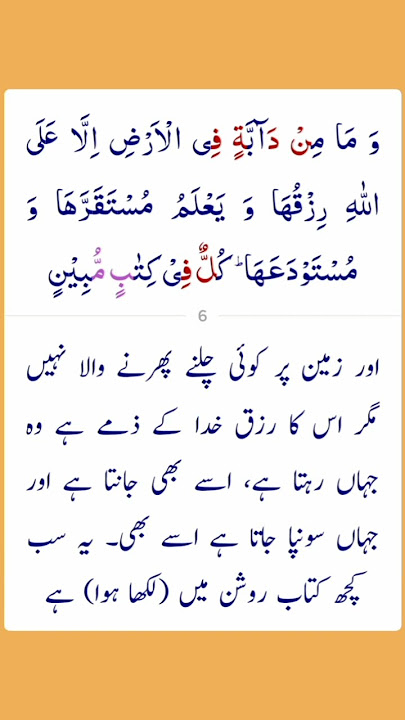 وَ مَا مِنْ دَآبَّةٍ فِی الْاَرْضِ اِلَّا عَلَی
اللّٰهِ رِزْقُهَا وَ یَعْلَمُ مُسْتَقَرَّهَا وَ
مُسْتَوْدَعَهَاؕ کُلٌّ فِیْ کِتٰبٍ مُّبِیْنٍ
6
اور زمین پر کوئی چلنے پھرنے والا نہیں
مگر اس کا رزق خدا کے ذمے ہے وہ
جہاں رہتا ہے، اسے بھی جانتا ہے اور
جہاں سونپا جاتا ہے اسے بھی۔ یہ سب
کچھ کتاب روشن میں (لکھا ہوا) ہے